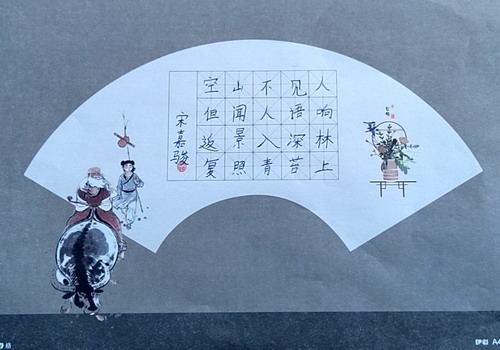 空山不见人
但闻人语响
返景入深林
复照青苔上
宋嘉骏